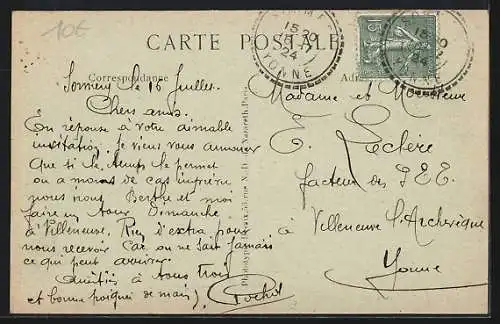 10€
CARTE POSTALE
Correspondance
Sormery le 16 Juillet.
Chers amis.
En réponse à votre aimable
invitation. Je viens vous annoncer
que si le temps le permet
ou a moins de cas imprévu
nous irons Berthe et moi
faire un tour Dimanche
à Villeneuve, Rien d'extra pour
nous recevoir Car on ne sait Jamais
ce qui peut arriver.
Amitiés à tous trois
et bonne poignée de main)
Madame et Monsieur
E. Leclère
facteur des P.T.T.
à
Villeneuve l'Archevêque
Yonne
15 20
24
YONNE
15